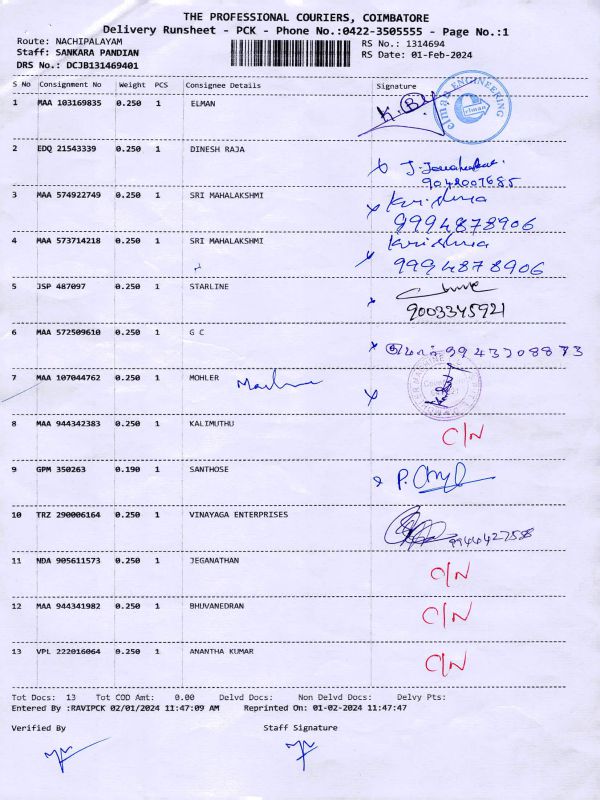 THE PROFESSIONAL COURIERS, COIMBATORE
Delivery Runsheet - PCK - Phone No.:0422-3505555 - Page No.:1
Route: NACHIPALAYAM
RS No.: 1314694
Staff: SANKARA PANDIAN
RS Date: 01-Feb-2024
DRS No.: DCJB131469401
S No Consignment No Weight PCS Consignee Details Signature
1 MAA 103169835 0.250 1 ELMAN
ENGINEERING
elman
2 EDQ 21543339 0.250 1 DINESH RAJA
9042007685
3 MAA 574922749 0.250 1 SRI MAHALAKSHMI Krishna
9994878906
4 MAA 573714218 0.250 1 SRI MAHALAKSHMI Krishna
9994878906
5 JSP 487097 0.250 1 STARLINE
9003345921
6 MAA 572509610 0.250 1 G C 9943208873
7 MAA 107044762 0.250 1 MOHLER
8 MAA 944342383 0.250 1 KALIMUTHU C/N
9 GPM 350263 0.190 1 SANTHOSE
10 TRZ 290006164 0.250 1 VINAYAGA ENTERPRISES
11 NDA 905611573 0.250 1 JEGANATHAN C/N
12 MAA 944341982 0.250 1 BHUVANEDRAN C/N
13 VPL 222016064 0.250 1 ANANTHA KUMAR C/N
Tot Docs: 13 Tot COD Amt: 0.00 Delvd Docs: Non Delvd Docs: Delvy Pts:
Entered By :RAVIPCK 02/01/2024 11:47:09 AM Reprinted On: 01-02-2024 11:47:47
Verified By Staff Signature